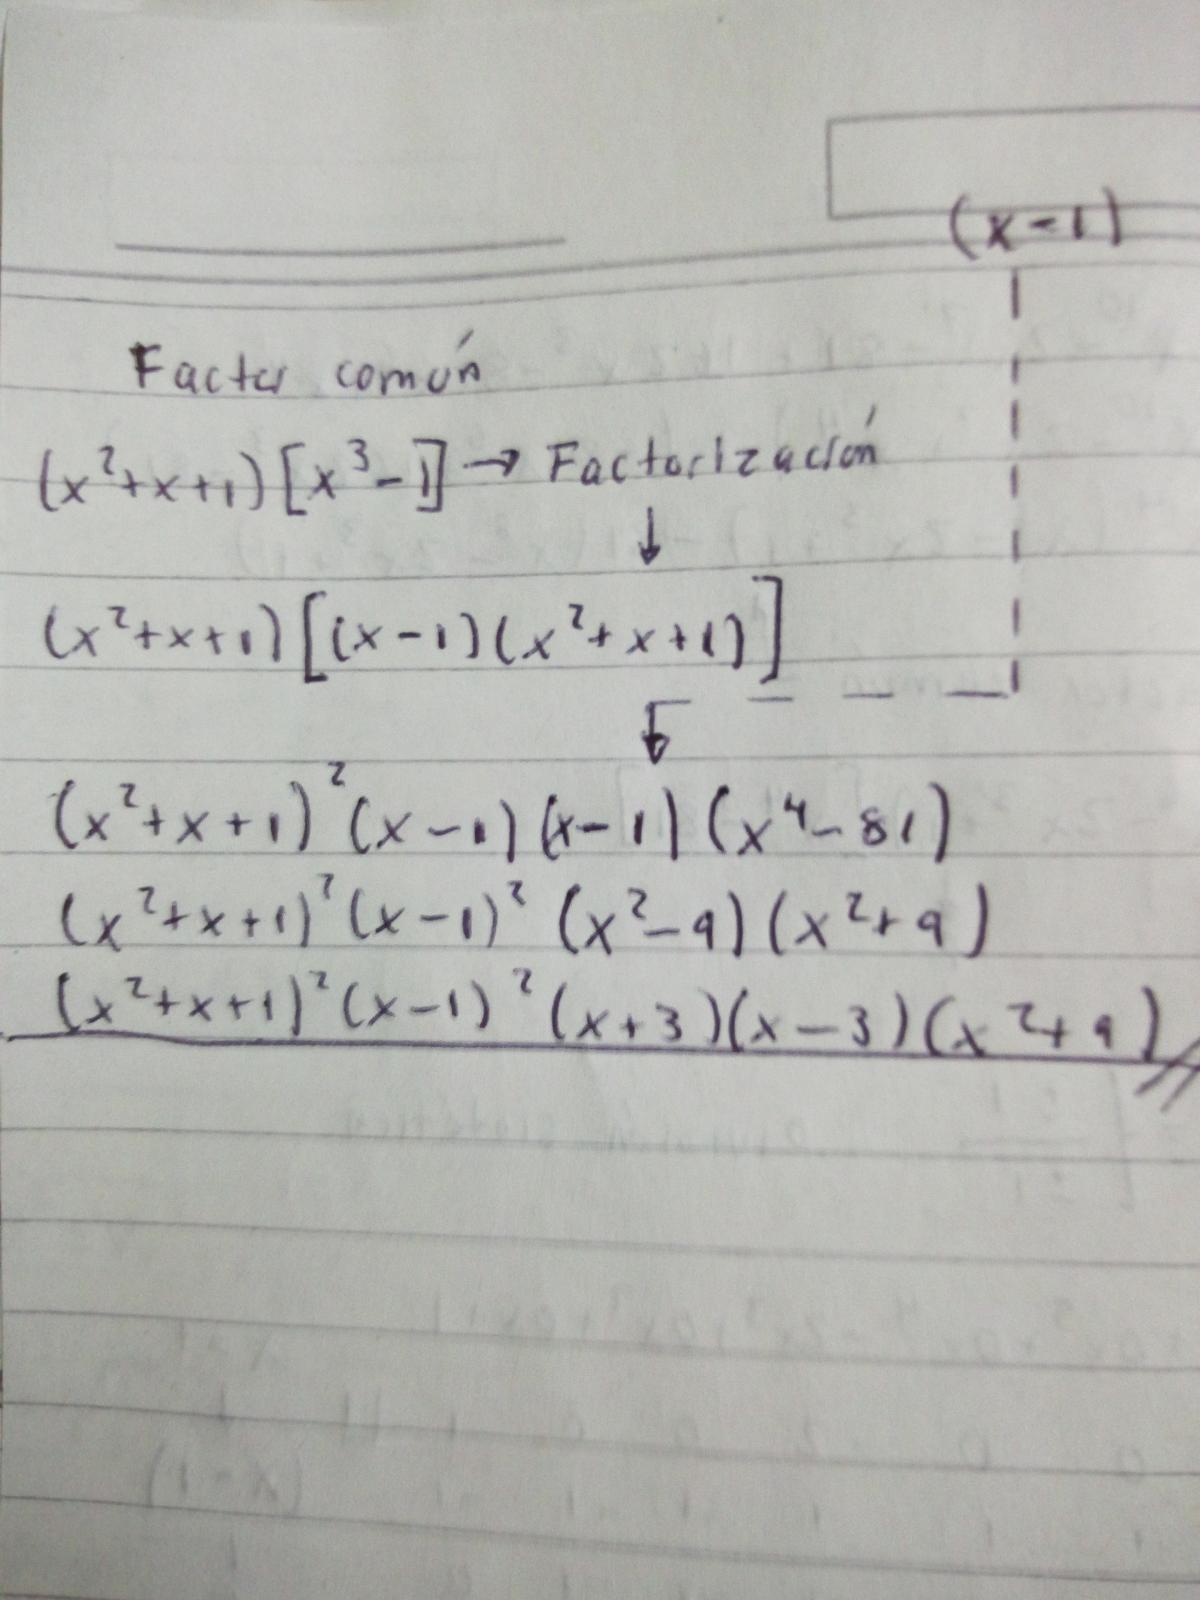 (x-1)
Factor común
(x²+x+1)[x³-1] → Factorización
(x²+x+1)[(x-1)(x²+x+1)]
(x²+x+1)²(x-1)(x-1)(x⁴-81)
(x²+x+1)²(x-1)²(x²-9)(x²+9)
(x²+x+1)²(x-1)²(x+3)(x-3)(x²+9)